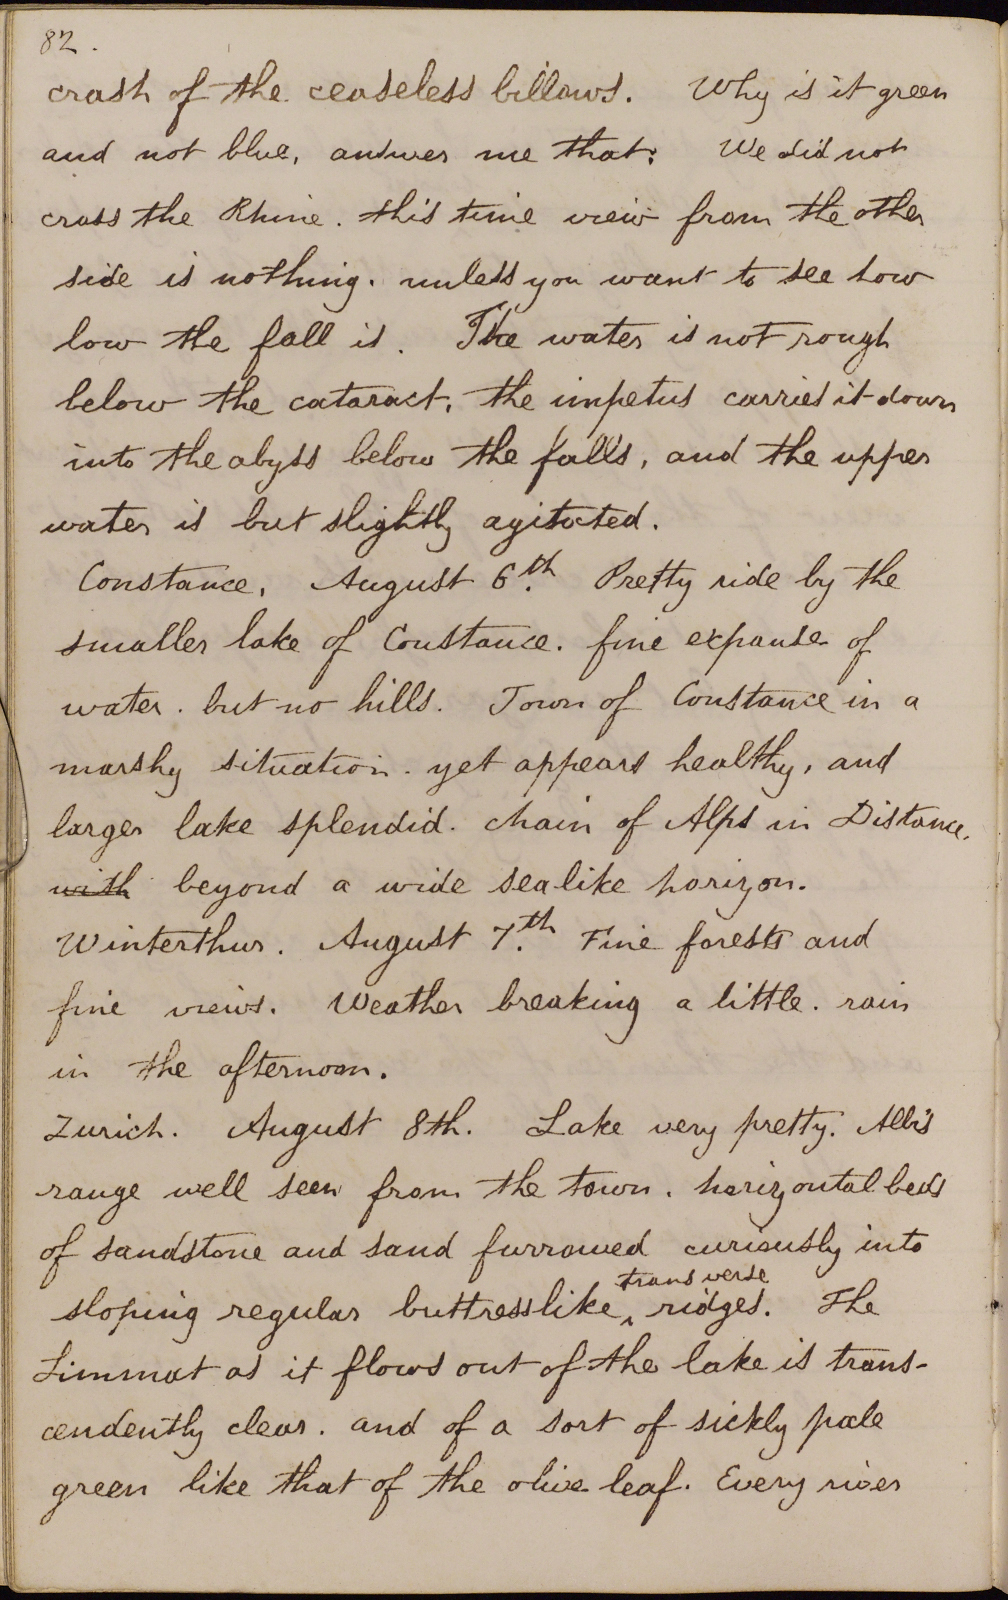 82.
crash of the ceaseless billows. Why is it green
and not blue, answer me that: We did not
cross the Rhine. this time view from the other
side is nothing. unless you want to see how
low the fall is. The water is not rough
below the cataract, the impetus carries it down
into the abyss below the falls, and the upper
water is but slightly agitated.
Constance, August 6th. Pretty ride by the
smaller lake of Constance. fine expanse of
water. but no hills. Town of Constance in a
marshy situation. yet appears healthy, and
larger lake splendid. chain of Alps in Distance.
with beyond a wide sealike horizon.
Winterthur. August 7.th Fine forests and
fine views. Weather breaking a little. rain
in the afternoon.
Zurich. August 8th. Lake very pretty. Albis
range well seen from the town. horizontal beds
of sandstone and sand furrowed curiously into
transverse
sloping regular buttresslike ‸ ridges. The
Limmat as it flows out of the lake is trans-
cendently clear. and of a sort of sickly pale
green like that of the olive leaf. Every river